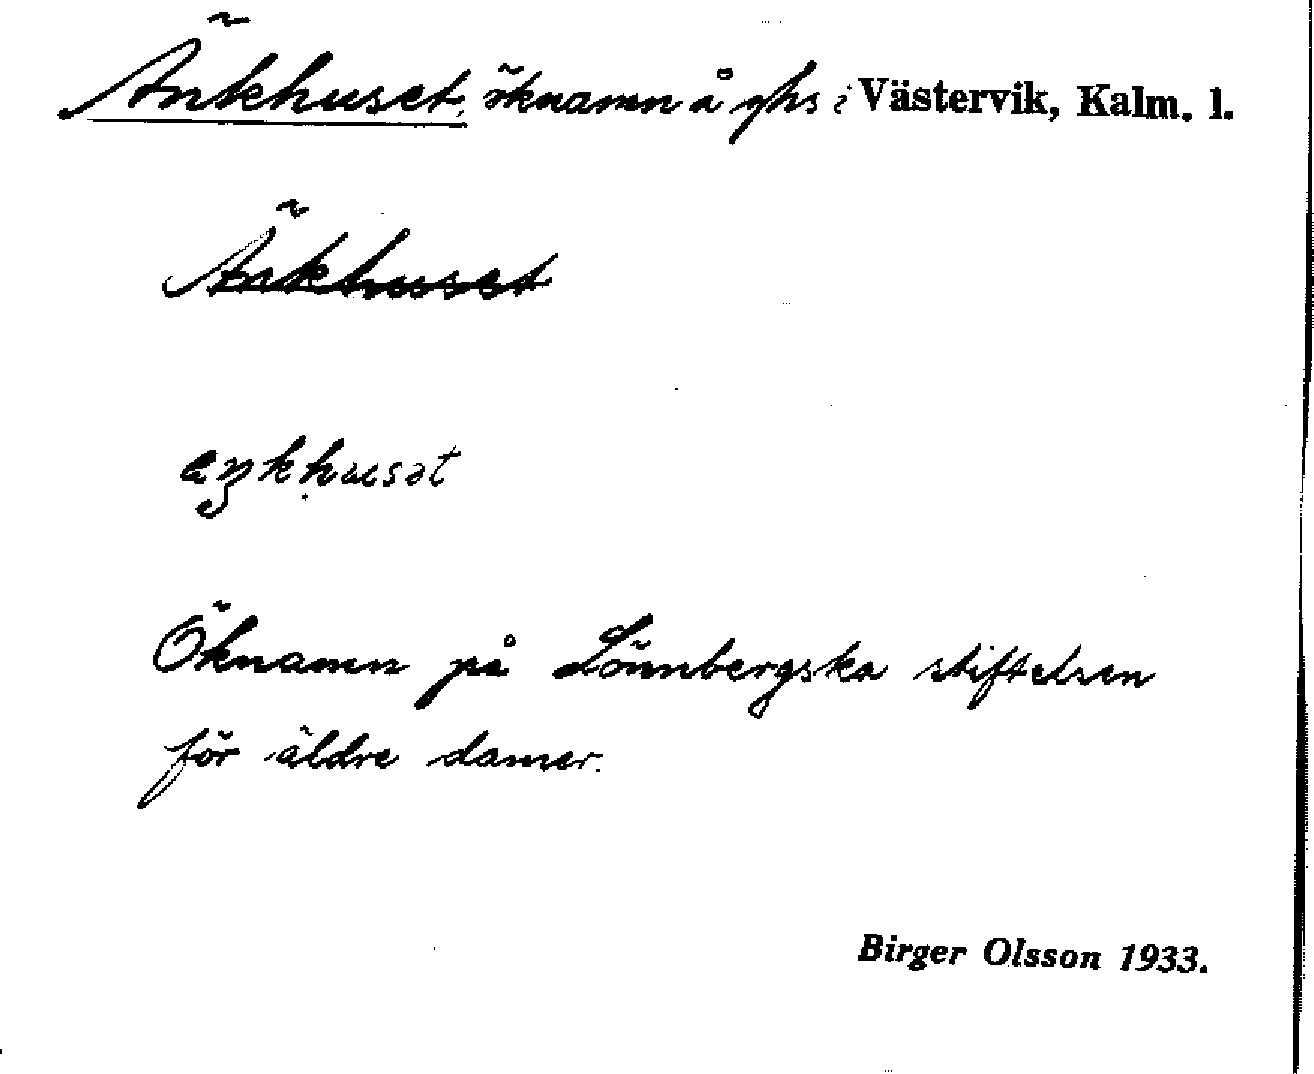 Änkhuset, öknamn å ghs i Västervik, Kalm. l.
Änkhuset
Öknamn på Lönnbergska stiftelsen
för äldre damer.
Birger Olsson 1933.